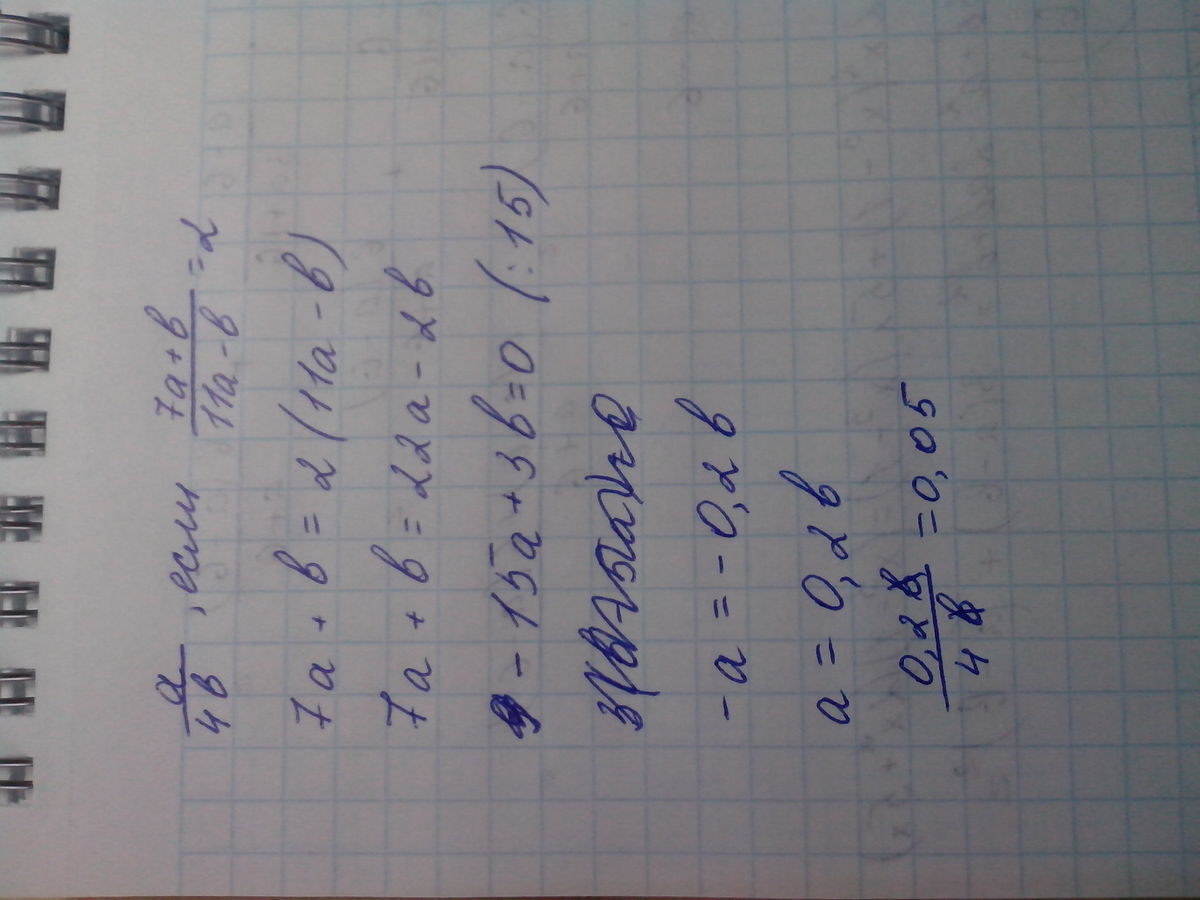 a/4в, если (7a+в)/(11a-в)=2
7a+в=2(11a-в)
7a+в=22a-2в
-15a+3в=0 (:15)
-a=-0,2в
a=0,2в
0,2в/4в=0,05